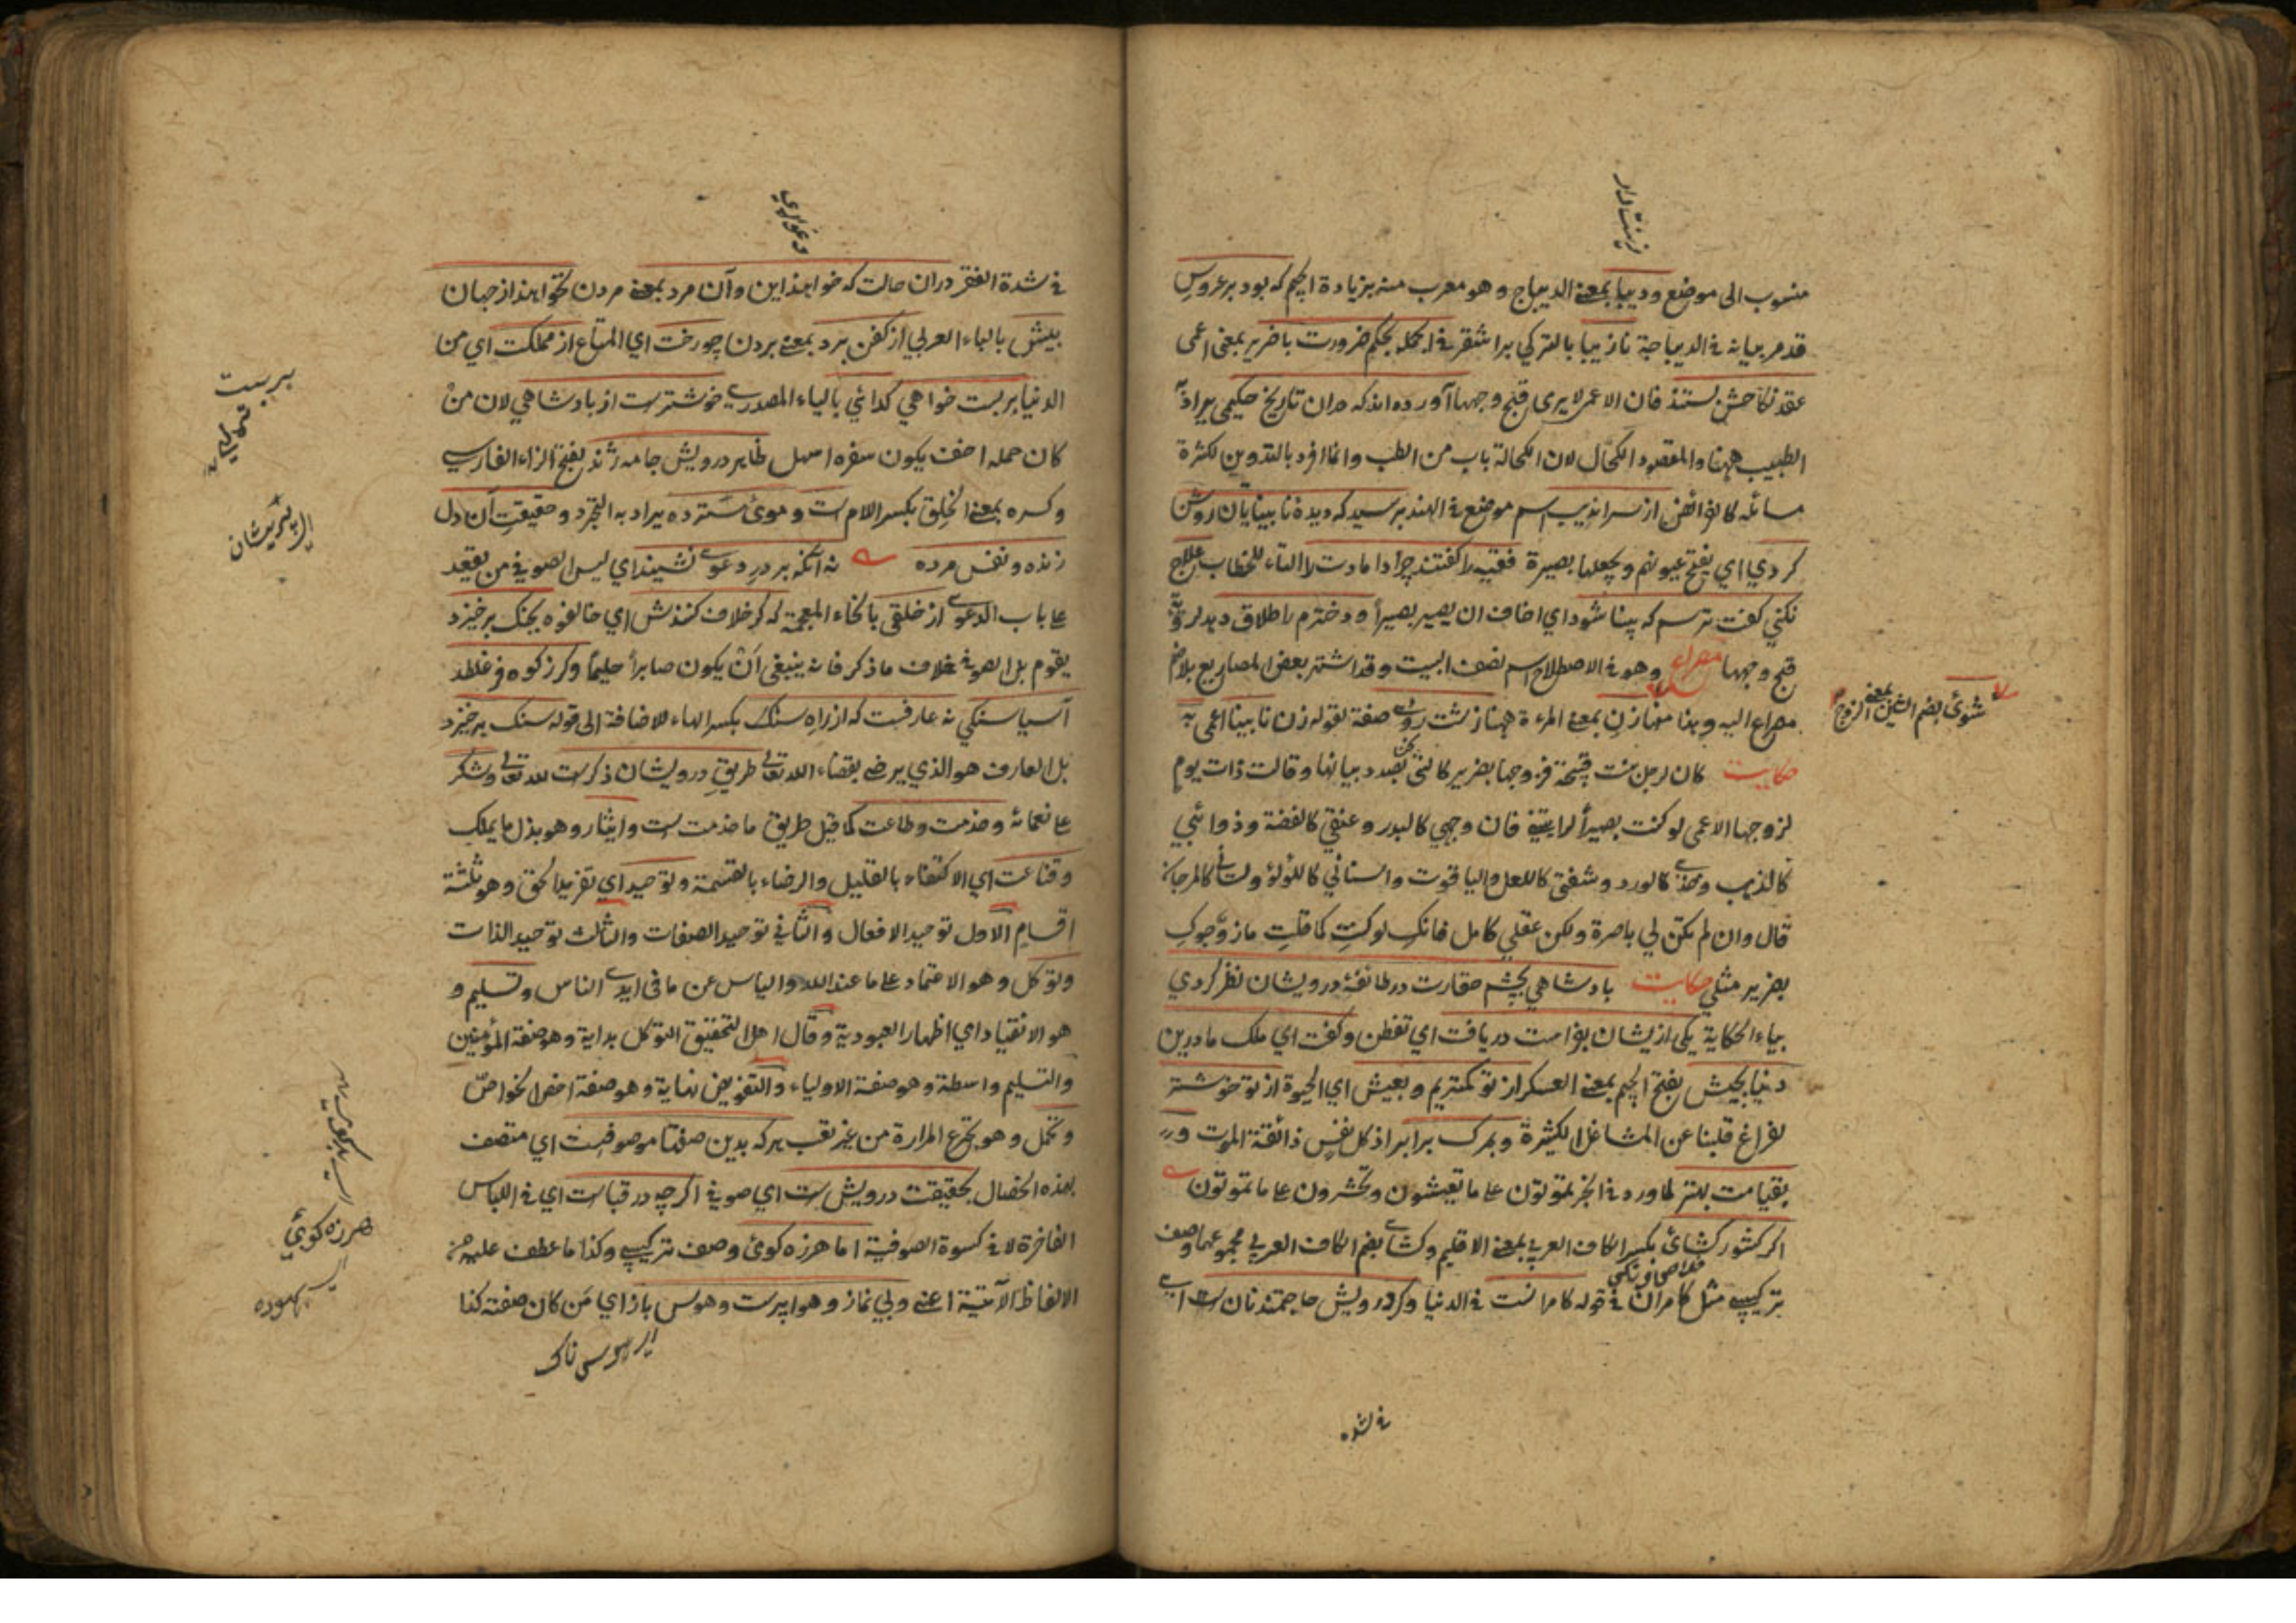 زینت دار
منسوب الی موضع ودیبا بمعنی الدیباج وهو معرب منه بزیادة الجیم که بود بر عروس
قد مر بیانه فی الدیباجة نازیبا بالترکی براشقر فی الجمله بحکم ضرورت با ضریر بمعنی اعمی
عقد نکاحش بستند فان الاعمی لا یری قبح وجهها آورده اند که دران تاریخ حکیمی یراد به
الطبیب ههنا والمقصود الکحال لان الکحالة باب من الطب وانما افرد بالتدوین لکثرة
مسائله کالفرائض از سراندیب اسم موضع فی الهند برسید که دیدۀ نابینایان روشن
کردی ای یفتح عیونهم ویجعلها بصیرة فقیه را گفتند چرا دامادت را التاء للخطاب علاج
نکنی گفت ترسم که بینا شود ای اخاف ان یصیر بصیرا و دخترم را طلاق دهد لرؤیة
قبح وجهها مصراع وهو فی الاصطلاح اسم نصف البیت وقد اشتهر بعض المصاریع بلا ضم
شوئ بضم الشین بمعنی الزوج
مصراع الیه وهذا منها زن بمعنی المرءة ههنا زشت روی صفة لقوله زن نابینا اعمی به
حکایت کان لرجل بنت قبیحة فزوجها بضریر کالتی نحن بصدد بیانها وقالت ذات یوم
لزوجها الاعمی لو کنت بصیرا لرایتنی فان وجهی کالبدر وعنقی کالفضة وذوائبی
کالذهب وخدی کالورد وشفتی کاللعل والیاقوت واسنانی کاللؤلؤ ولسانی کالمرجان
قال وان لم تکن لی باصرة ولکن عقلی کامل فانک لو کنت کما قلت ما زوجوک
بضریر مثلی حکایت پادشاهی بچشم حقارت در طائفۀ درویشان نظر کردی
بیاء الحکایة یکی ازیشان بفراست دریافت ای تفطن وگفت ای ملک ما درین
دنیا بجیش بفتح الجیم بمعنی العسکر از تو کمتریم وبعیش ای الحیوة از تو خوشتر
لفراغ قلبنا عن المشاغل الکثیرة وبمرک برابر اذ کل نفس ذائقة الموت و
بقیامت بهتر لما ورد فی الخبر تموتون علی ما تعیشون وتحشرون علی ما تموتون
اکر کشور کشائ بکسر الکاف العربی بمعنی الاقلیم وکشای بضم الکاف العربی مجموعهما وصف
ترکیبی مثل کامران فی قوله کامرانست فی الدنیا وکر درویش حاجتمند نان است ای
فی شده
دعوای
فی شدة الفقر دران حالت که خواهند این وآن مرد بمعنی مردن نخواهند از جهان
بیش بالباء العربی از کفن برد بمعنی بردن چو رخت ای المتاع از مملکت ای من
الدنیا بربست خواهی کدائی بالیاء المصدری خوشترست از پادشاهی لان من
کان حمله اخف یکون سفره اسهل ظاهر درویش جامه ژنده بفتح الزاء الفارسی
وکسره بمعنی الخلق بکسر اللام است وموئ سترده یراد به التجرد وحقیقت آن دل
زنده ونفس مرده نه آنکه بر در دعوی نشیند ای لیس الصوفی من یقعد
علی باب الدعوی از خلقی بالخاء المعجمة که کر خلاف کنندش ای خالفوه بجنک برخیزد
یقوم بل الصوفی بخلاف ما ذکر فانه ینبغی ان یکون صابرا حلیما وکر ز کوه فرو غلطد
آسیا سنکی نه عارفست که از راه سنک بکسر الهاء للاضافة الی قوله سنک برخیزد
بل العارف هو الذی یرضی بقضاء الله تعالی طریق درویشان ذکرست لله تعالی وشکر
علی نعمائه وخدمت وطاعت کما قیل طریق ما خدمت است وایثار وهو بذل ما یملک
وقناعت ای الاکتفاء بالقلیل والرضاء بالقسمة وتوحید ای تفرید الحق وهو ثلثة
اقسام الاول توحید الافعال والثانی توحید الصفات والثالث توحید الذات
وتوکل وهو الاعتماد علی ما عند الله والیاس عن ما فی ایدی الناس وتسلیم و
هو الانقیاد ای اظهار العبودیة وقال اهل التحقیق التوکل بدایة وهو صفة المؤمنین
والتسلیم واسطة وهو صفة الاولیاء والتفویض نهایة وهو صفة اخص الخواص
وتحمل وهو تجرع المرارة من غیر تعب هرکه بدین صفتها موصوفست ای متصف
بهذه الخصال بحقیقت درویش است ای صوفی اکرچه در قباست ای فی اللباس
الفاخرة لا فی کسوة الصوفیة اما هرزه کوئ وصف ترکیبی وکذا ما عطف علیه من
الالفاظ الآتیة اعنی وبی نماز وهوا پرست وهوس باز ای من کان صفته کذا
ای هوس ناک
بربست
پریشان
هرزه کوئ
ای بیهوده